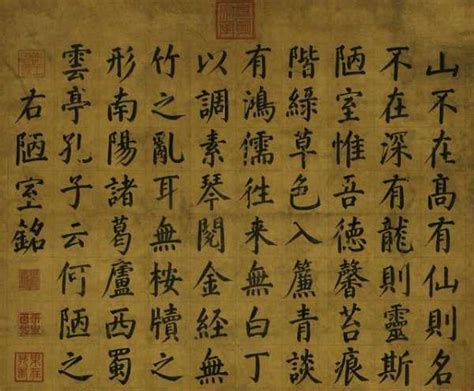 山不在髙有仙則名
不在深有龍則靈斯
陋室惟吾德馨苔痕
階綠草色入簾青談
有鴻儒徃来無白丁
以調素琴閱金經無
竹之亂耳無桉牘之
形南陽諸葛廬西蜀
雲亭孔子云何陋之
右陋室銘